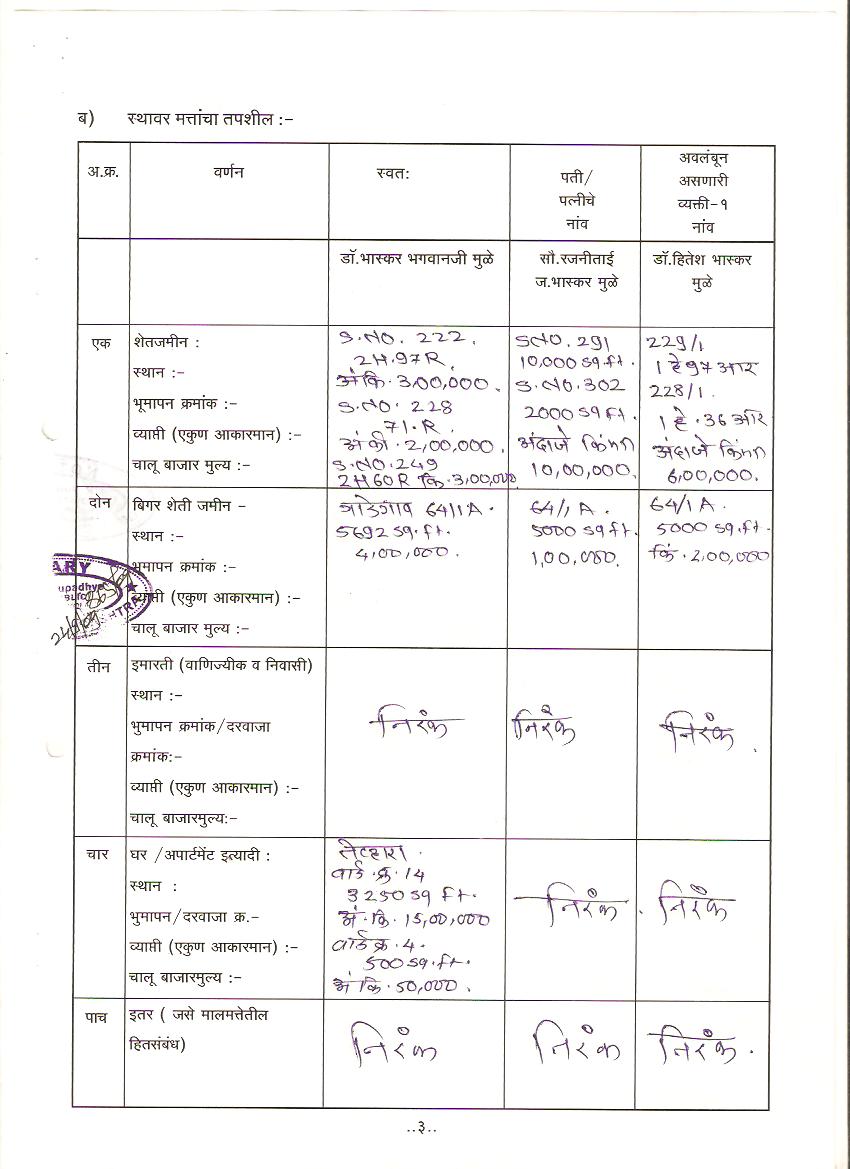 ब) स्थावर मत्तांचा तपशील :-
अ.क्र. वर्णन स्वतः पती/ पत्नीचे नांव अवलंबून असणारी व्यक्ती-१ नांव
डॉ.भास्कर भगवानजी मुळे सौ.रजनीताई ज.भास्कर मुळे डॉ.हितेश भास्कर मुळे
एक शेतजमीन :
स्थान :-
भूमापन क्रमांक :-
व्याप्ती (एकुण आकारमान) :-
चालू बाजार मुल्य :-
S.NO. 222.
2H.97R.
अं कि. 3,00,000.
S.NO. 228
71.R.
अं की. 2,00,000.
S.NO.249
2H60R कि. 3,00,000
SNO. 291
10,000 sq.ft.
S.NO.302
2000 sq ft.
अंदाजे किंमत
10,00,000.
229/1
1 हे 97 आर
228/1.
1 हे. 36 आर
अंदाजे किंमत
6,00,000.
दोन बिगर शेती जमीन -
स्थान :-
भुमापन क्रमांक :-
व्याप्ती (एकुण आकारमान) :-
चालू बाजार मुल्य :-
64/1A.
5692 sq.ft.
4,00,000.
64/1 A.
5000 sq ft.
1,00,000.
64/1 A.
5000 sq.ft.
कि. 2,00,000
ARY
upadhye
24/9/09
तीन इमारती (वाणिज्यीक व निवासी)
स्थान :-
भुमापन क्रमांक/दरवाजा
क्रमांक:-
व्याप्ती (एकुण आकारमान) :-
चालू बाजारमुल्य:-
निरंक निरंक निरंक
चार घर /अपार्टमेंट इत्यादी :
स्थान :
भुमापन/दरवाजा क्र.-
व्याप्ती (एकुण आकारमान) :-
चालू बाजारमुल्य :-
तेल्हारा.
वार्ड.क्र. 14
3250 sq ft.
अं. कि. 15,00,000
वार्ड क्र. 4.
500 sq.ft.
अं कि. 50,000.
निरंक. निरंक
पाच इतर ( जसे मालमत्तेतील
हितसंबंध)
निरंक निरंक निरंक.
..३..